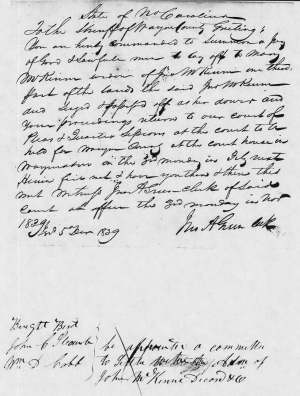 State of No Carolina
To the Sheriff of Wayne County Greeting
You are hereby commanded to summon a Jury
of Good & Lawful men to lay off to Mary
McKinne widow of Jno McKinne one third
part of the lands the said Jno McKinne
died
off as her dower and
your proceedings return to our court of
Pleas & Quarter Sessions at the court to be
held for Wayne County at the court house in
Waynesboro on the 3rd monday in Feby next
Herein fail not & have you then & there this
writ Witness Jno A Green Clerk of said
Court at office the 3rd monday in Nov
1839 5 Decr 1839
Jno A Green Clk
Bright Bird
John C Slocumb
Wm D Cobb
be appointed a committee
to settle with the Adm of
John McKinne Decd &c